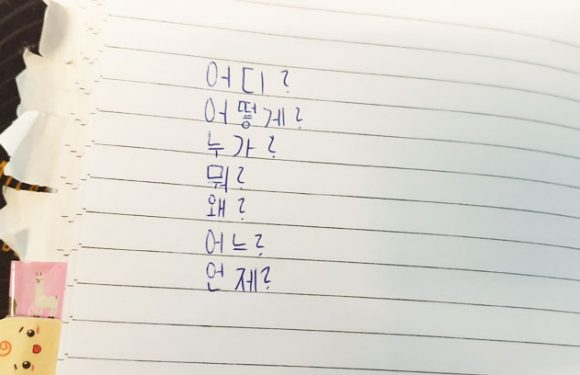 어디?
어떻게?
누가?
뭐?
왜?
어느?
언제?